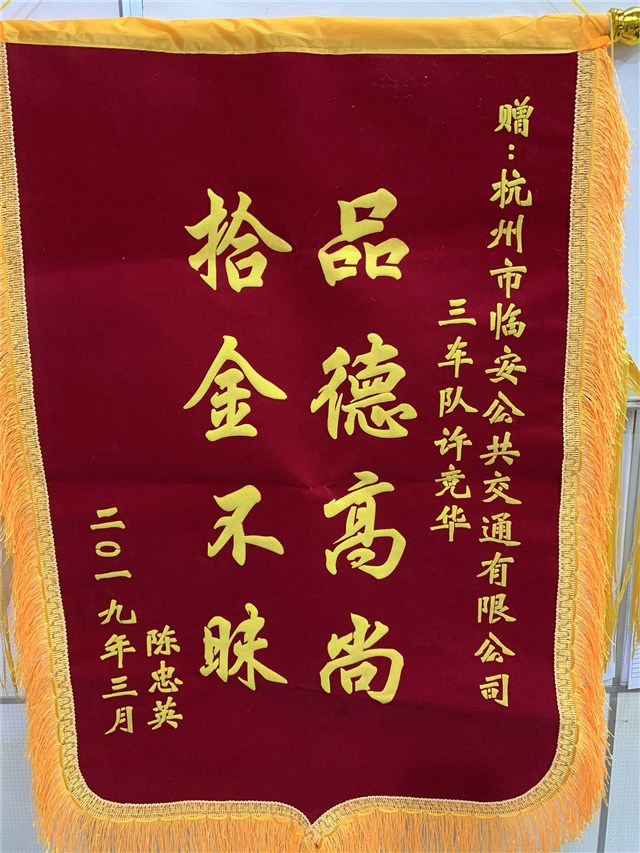 赠：杭州市临安公共交通有限公司
三车队许竞华
品德高尚
拾金不昧
陈忠英
二〇一九年三月